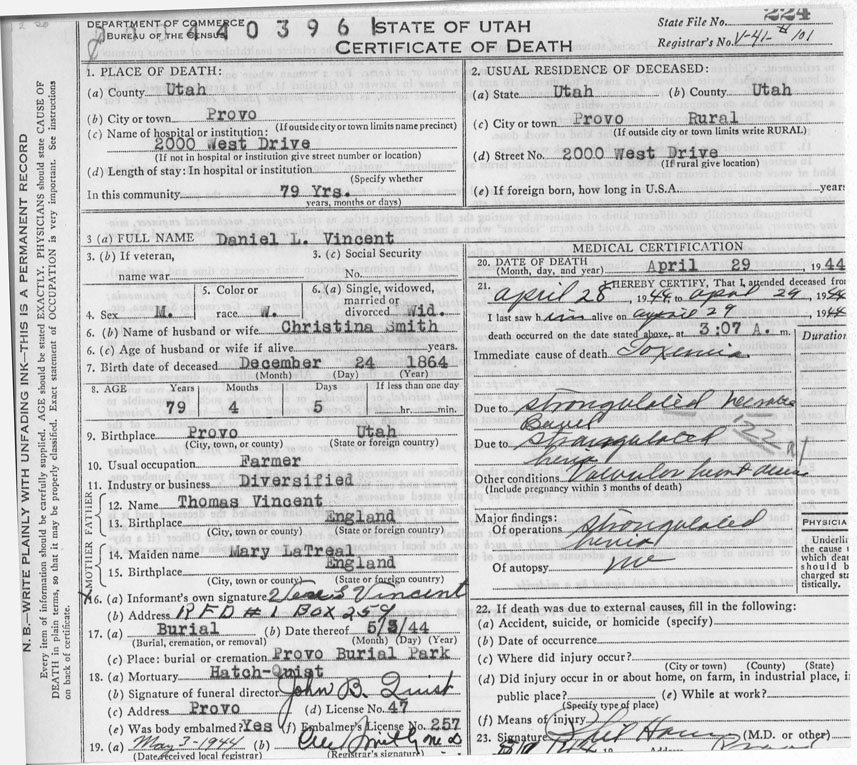 DEPARTMENT OF COMMERCE
BUREAU OF THE CENSUS
40396
STATE OF UTAH
CERTIFICATE OF DEATH
State File No. 224
Registrar's No. V-41-#101
N. B.—WRITE PLAINLY WITH UNFADING INK—THIS IS A PERMANENT RECORD
Every item of information should be carefully supplied. AGE should be stated EXACTLY. PHYSICIANS should state CAUSE OF
DEATH in plain terms, so that it may be properly classified. Exact statement of OCCUPATION is very important. See instructions
on back of certificate.
1. PLACE OF DEATH:
(a) County Utah
(b) City or town Provo
(If outside city or town limits name precinct)
(c) Name of hospital or institution:
2000 West Drive
(If not in hospital or institution give street number or location)
(d) Length of stay: In hospital or institution
(Specify whether
In this community 79 Yrs.
years, months or days)
2. USUAL RESIDENCE OF DECEASED:
(a) State Utah (b) County Utah
(c) City or town Provo Rural
(If outside city or town limits write RURAL)
(d) Street No. 2000 West Drive
(If rural give location)
(e) If foreign born, how long in U.S.A. years
3 (a) FULL NAME Daniel L. Vincent
3. (b) If veteran,
name war
3. (c) Social Security
No.
4. Sex M.
5. Color or
race W.
6. (a) Single, widowed,
married or
divorced Wid.
6. (b) Name of husband or wife Christina Smith
6. (c) Age of husband or wife if alive years.
7. Birth date of deceased December 24 1864
(Month) (Day) (Year)
8. AGE Years Months Days If less than one day
79 4 5 hr. min.
9. Birthplace Provo Utah
(City, town, or county) (State or foreign country)
10. Usual occupation Farmer
11. Industry or business Diversified
FATHER
12. Name Thomas Vincent
13. Birthplace England
(City, town, or county) (State or foreign country)
MOTHER
14. Maiden name Mary LaTreal
15. Birthplace England
(City, town or county) (State or foreign country)
X16. (a) Informant's own signature Vincent
(b) Address RFD #1 Box 259
17. (a) Burial (b) Date thereof 5/3/44
(Burial, cremation, or removal) (Month) (Day) (Year)
(c) Place: burial or cremation Provo Burial Park
18. (a) Mortuary Hatch-Quist
(b) Signature of funeral director John B. Quist
(c) Address Provo (d) License No. 47
(e) Was body embalmed? Yes (f) Embalmer's License No. 257
19. (a) May 3-1944 (b)
(Date received local registrar) (Registrar's signature)
MEDICAL CERTIFICATION
20. DATE OF DEATH
(Month, day, and year) April 29, 1944
21. I HEREBY CERTIFY, That I attended deceased from
April 28, 1944 to April 29, 1944
I last saw him alive on April 29 1944
death occurred on the date stated above, at 3:07 A. m.
Duration
Immediate cause of death Toxemia
Due to strangulated
Bowel
Due to strangulated
hernia
Other conditions Valvular heart disease
(Include pregnancy within 3 months of death)
Major findings:
Of operations strangulated
hernia
Of autopsy
PHYSICIA
Underli
the cause
which deat
should b
charged sta
tistically.
22. If death was due to external causes, fill in the following:
(a) Accident, suicide, or homicide (specify)
(b) Date of occurrence
(c) Where did injury occur?
(City or town) (County) (State)
(d) Did injury occur in or about home, on farm, in industrial place, i
public place? (e) While at work?
(Specify type of place)
(f) Means of injury
23. Signature (M.D. or other)
Address